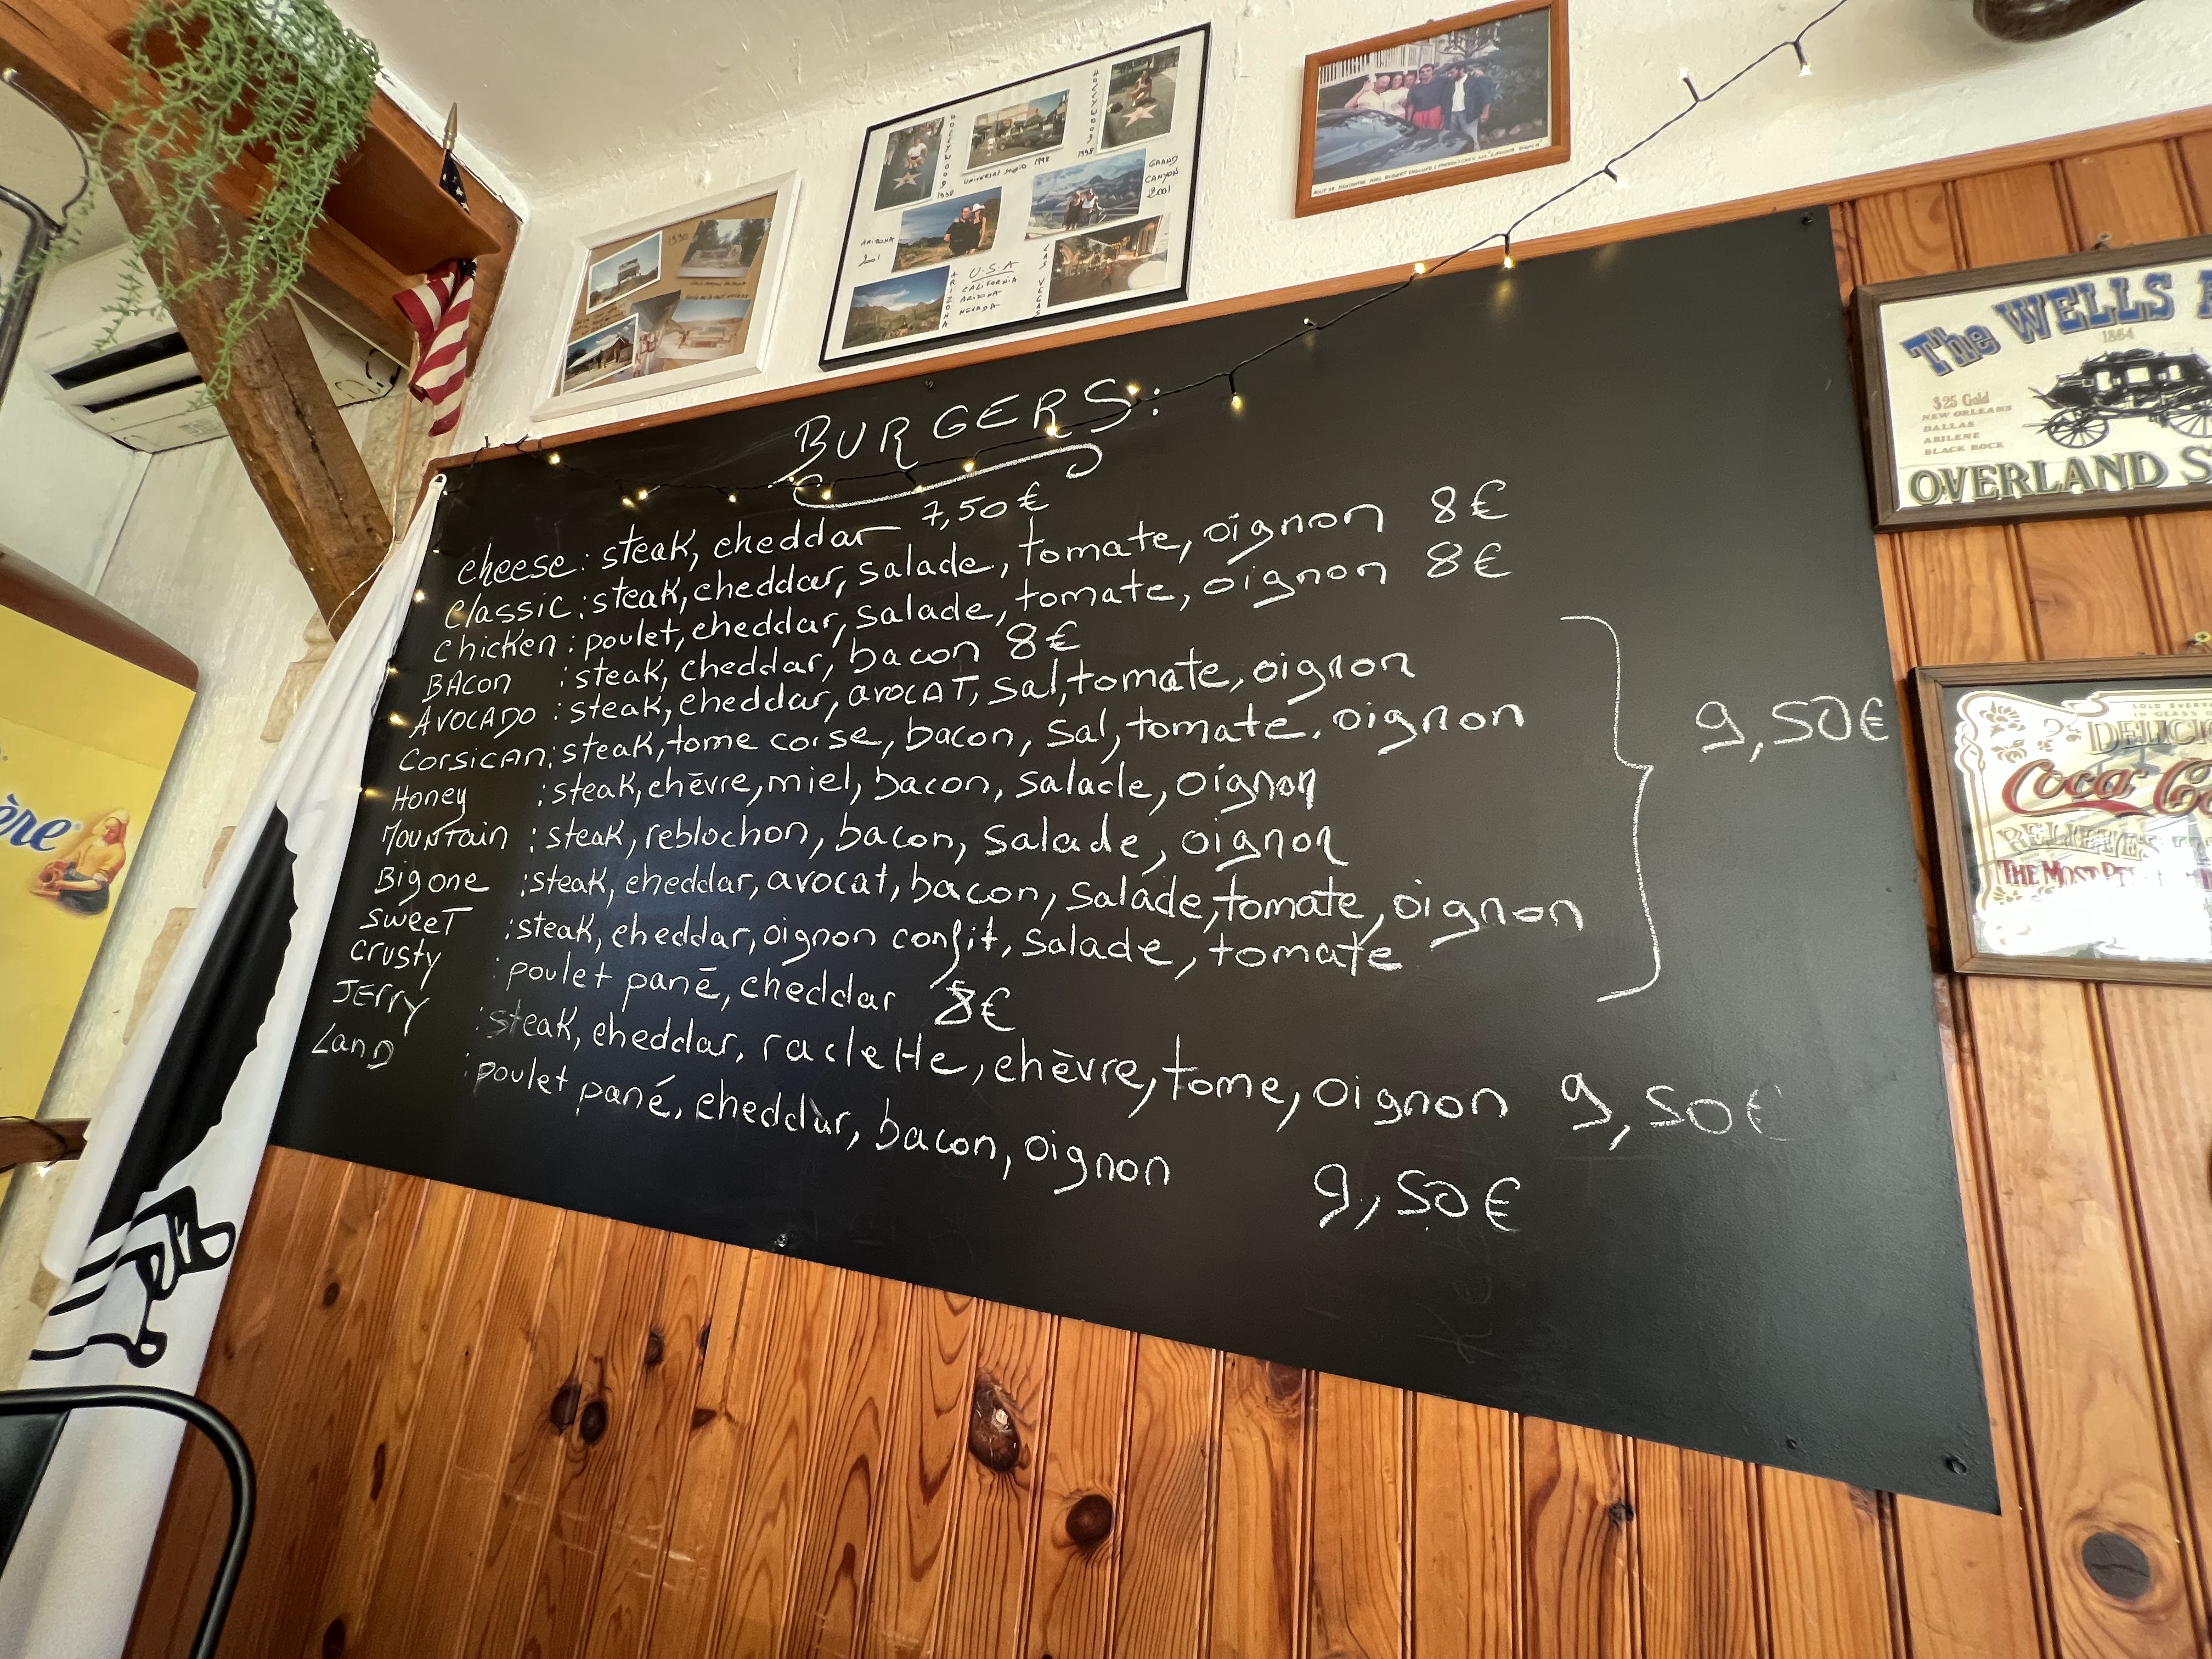 HOLLYWOOD 1998
UNIVERSAL STUDIO 1998
HOLLYWOOD 1998
GRAND CANYON 2001
ARIZONA 2001
ARIZONA
U.S.A
CALIFORNIA
ARIZONA
NEVADA
LAS VEGAS
1990
The WELLS
1864
$25 Gold
NEW ORLEANS
DALLAS
ABILENE
BLACK ROCK
OVERLAND S
BURGERS:
cheese: steak, cheddar 7,50€
classic: steak, cheddar, salade, tomate, oignon 8€
chicken: poulet, cheddar, salade, tomate, oignon 8€
BACON : steak, cheddar, bacon 8€
AVOCADO : steak, cheddar, avocaT, sal, tomate, oignon
CORSICAN: steak, tome corse, bacon, sal, tomate, oignon
Honey : steak, chèvre, miel, bacon, salade, oignon
MOUNTain : steak, reblochon, bacon, salade, oignon
Big one : steak, cheddar, avocat, bacon, salade, tomate, oignon
SweeT : steak, cheddar, oignon confit, salade, tomate
9,50€
crusty : poulet pané, cheddar 8€
JErry : steak, cheddar, raclette, chèvre, tome, oignon 9,50€
LanD : poulet pané, cheddar, bacon, oignon 9,50€
DELICI
Coca Co
RELIEVES
THE MOST RE
ère